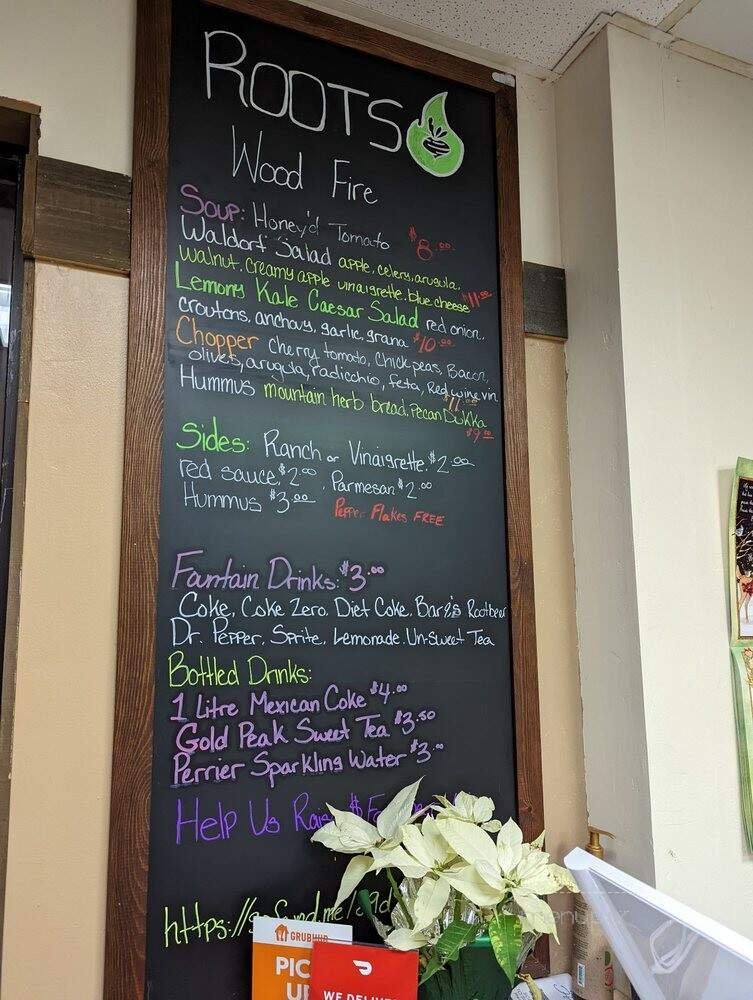 ROOTS
Wood Fire
Soup: Honey'd Tomato $8.00
Waldorf Salad apple, celery, arugula,
walnut, creamy apple vinaigrette, blue cheese $11.00
Lemony Kale Caesar Salad red onion,
croutons, anchovy, garlic, grana $10.00
Chopper Cherry tomato, Chickpeas, Bacon,
olives, arugula, radicchio, feta, Red wine vin
$11.00
Hummus mountain herb bread, Pecan Dukka
$9.00
Sides: Ranch or Vinaigrette $2.00
red sauce $2.00, Parmesan $2.00
Hummus $3.00 Pepper Flakes FREE
Fountain Drinks: $3.00
Coke, Coke Zero, Diet Coke, Barq's Rootbeer
Dr. Pepper, Sprite, Lemonade, Un-Sweet Tea
Bottled Drinks:
1 Litre Mexican Coke $4.00
Gold Peak Sweet Tea $3.50
Perrier Sparkling Water $3.00
Help Us Rai
https://gofund.me/
GRUBHUB
PIC
UP
WE DELIVER